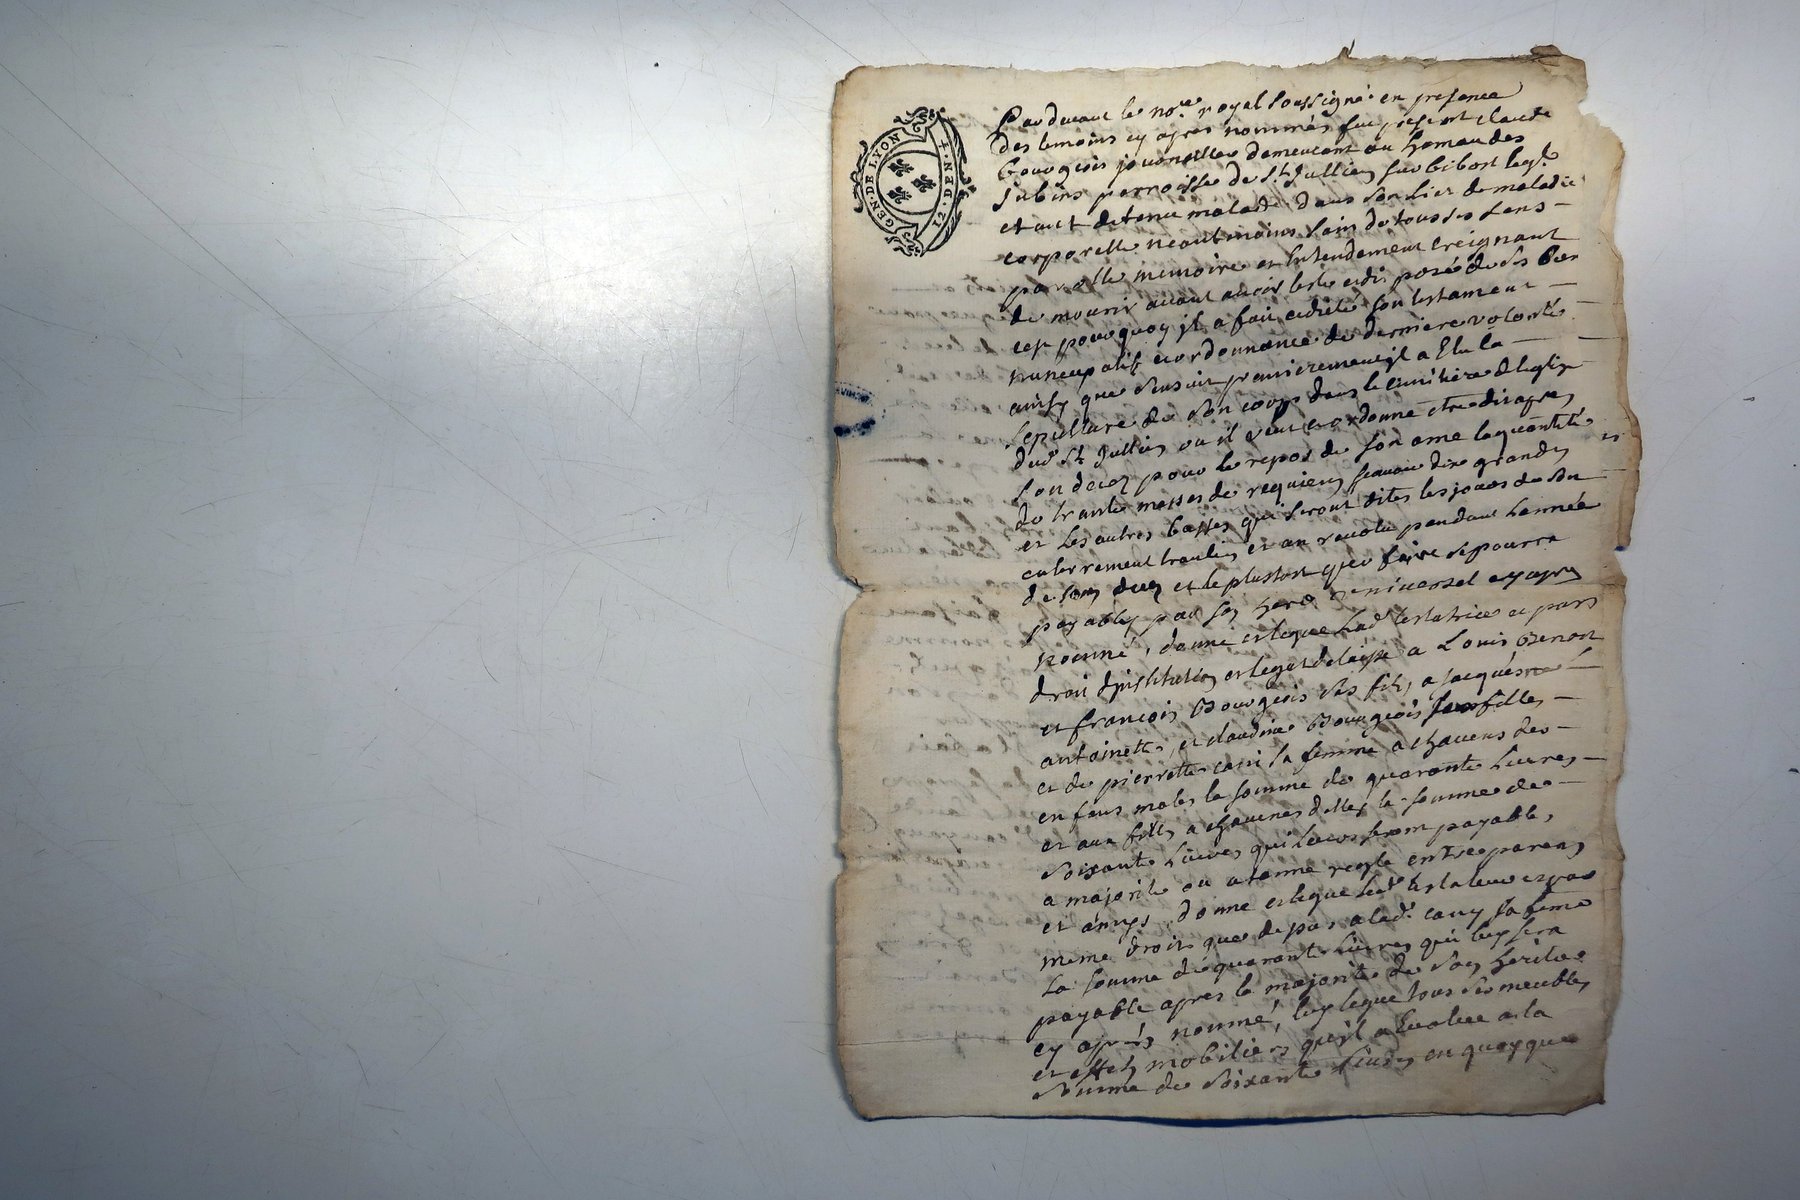 GEN. DE LYON
12. DEN. 4.
Pardevant le no.re royal soussigné en presence
des temoins cy apres nommés fut present Claude
bourgeois journallier demeurant au hameau des
Jubins parroisse de St Jullien sur bibost lequel
etant detenu malade dans son lict de maladie
corporelle neantmoins sain de tous ses sens
parolle memoire et entendement creignant
de mourir avant avoir testé et disposé de ses biens
cest pourquoy il a fait et dicté son testament
nuncupatif et ordonnance de derniere volonté
ainsy que sensuit premierement il a Elu la
sepulture de son corps dans le cimitiere de leglise
dud. St Jullien ou il veut et ordonne etre dit apres
son decez pour le repos de son ame la quantité
de trante messes de requiem scavoir dix grandes
et les autres basses qui seront dites les jours de son
enterrement trantin et an revolu pendant lannée
de son decez et le plustost que faire se pourra
payables par son here. universel cy apres
nommé, donne et legue lad. testatrice et par
droit dinstitution et legat delaisse a Louis Benoit
et francois Bourgeois ses fils, a jacquéme
antoinette, et claudine Bourgeois ses filles
et de pierrette cani sa femme a chacuns des
enfans males la somme de quarante livres
et aux filles a chacunes delles la somme de
soixante livres qui leurs seront payables
a majorité ou a terme reglé entre parens
et amys, donne et legue led. testateur et par
meme droit que depus a lad. cany sa feme
la somme de quarante livres qui luy sera
payable apres la majorité de son heritier
cy après nommé, luy legue tous ses meubles
et effets mobiliers quil a Evaluée a la
somme de soixante livres en quoy que